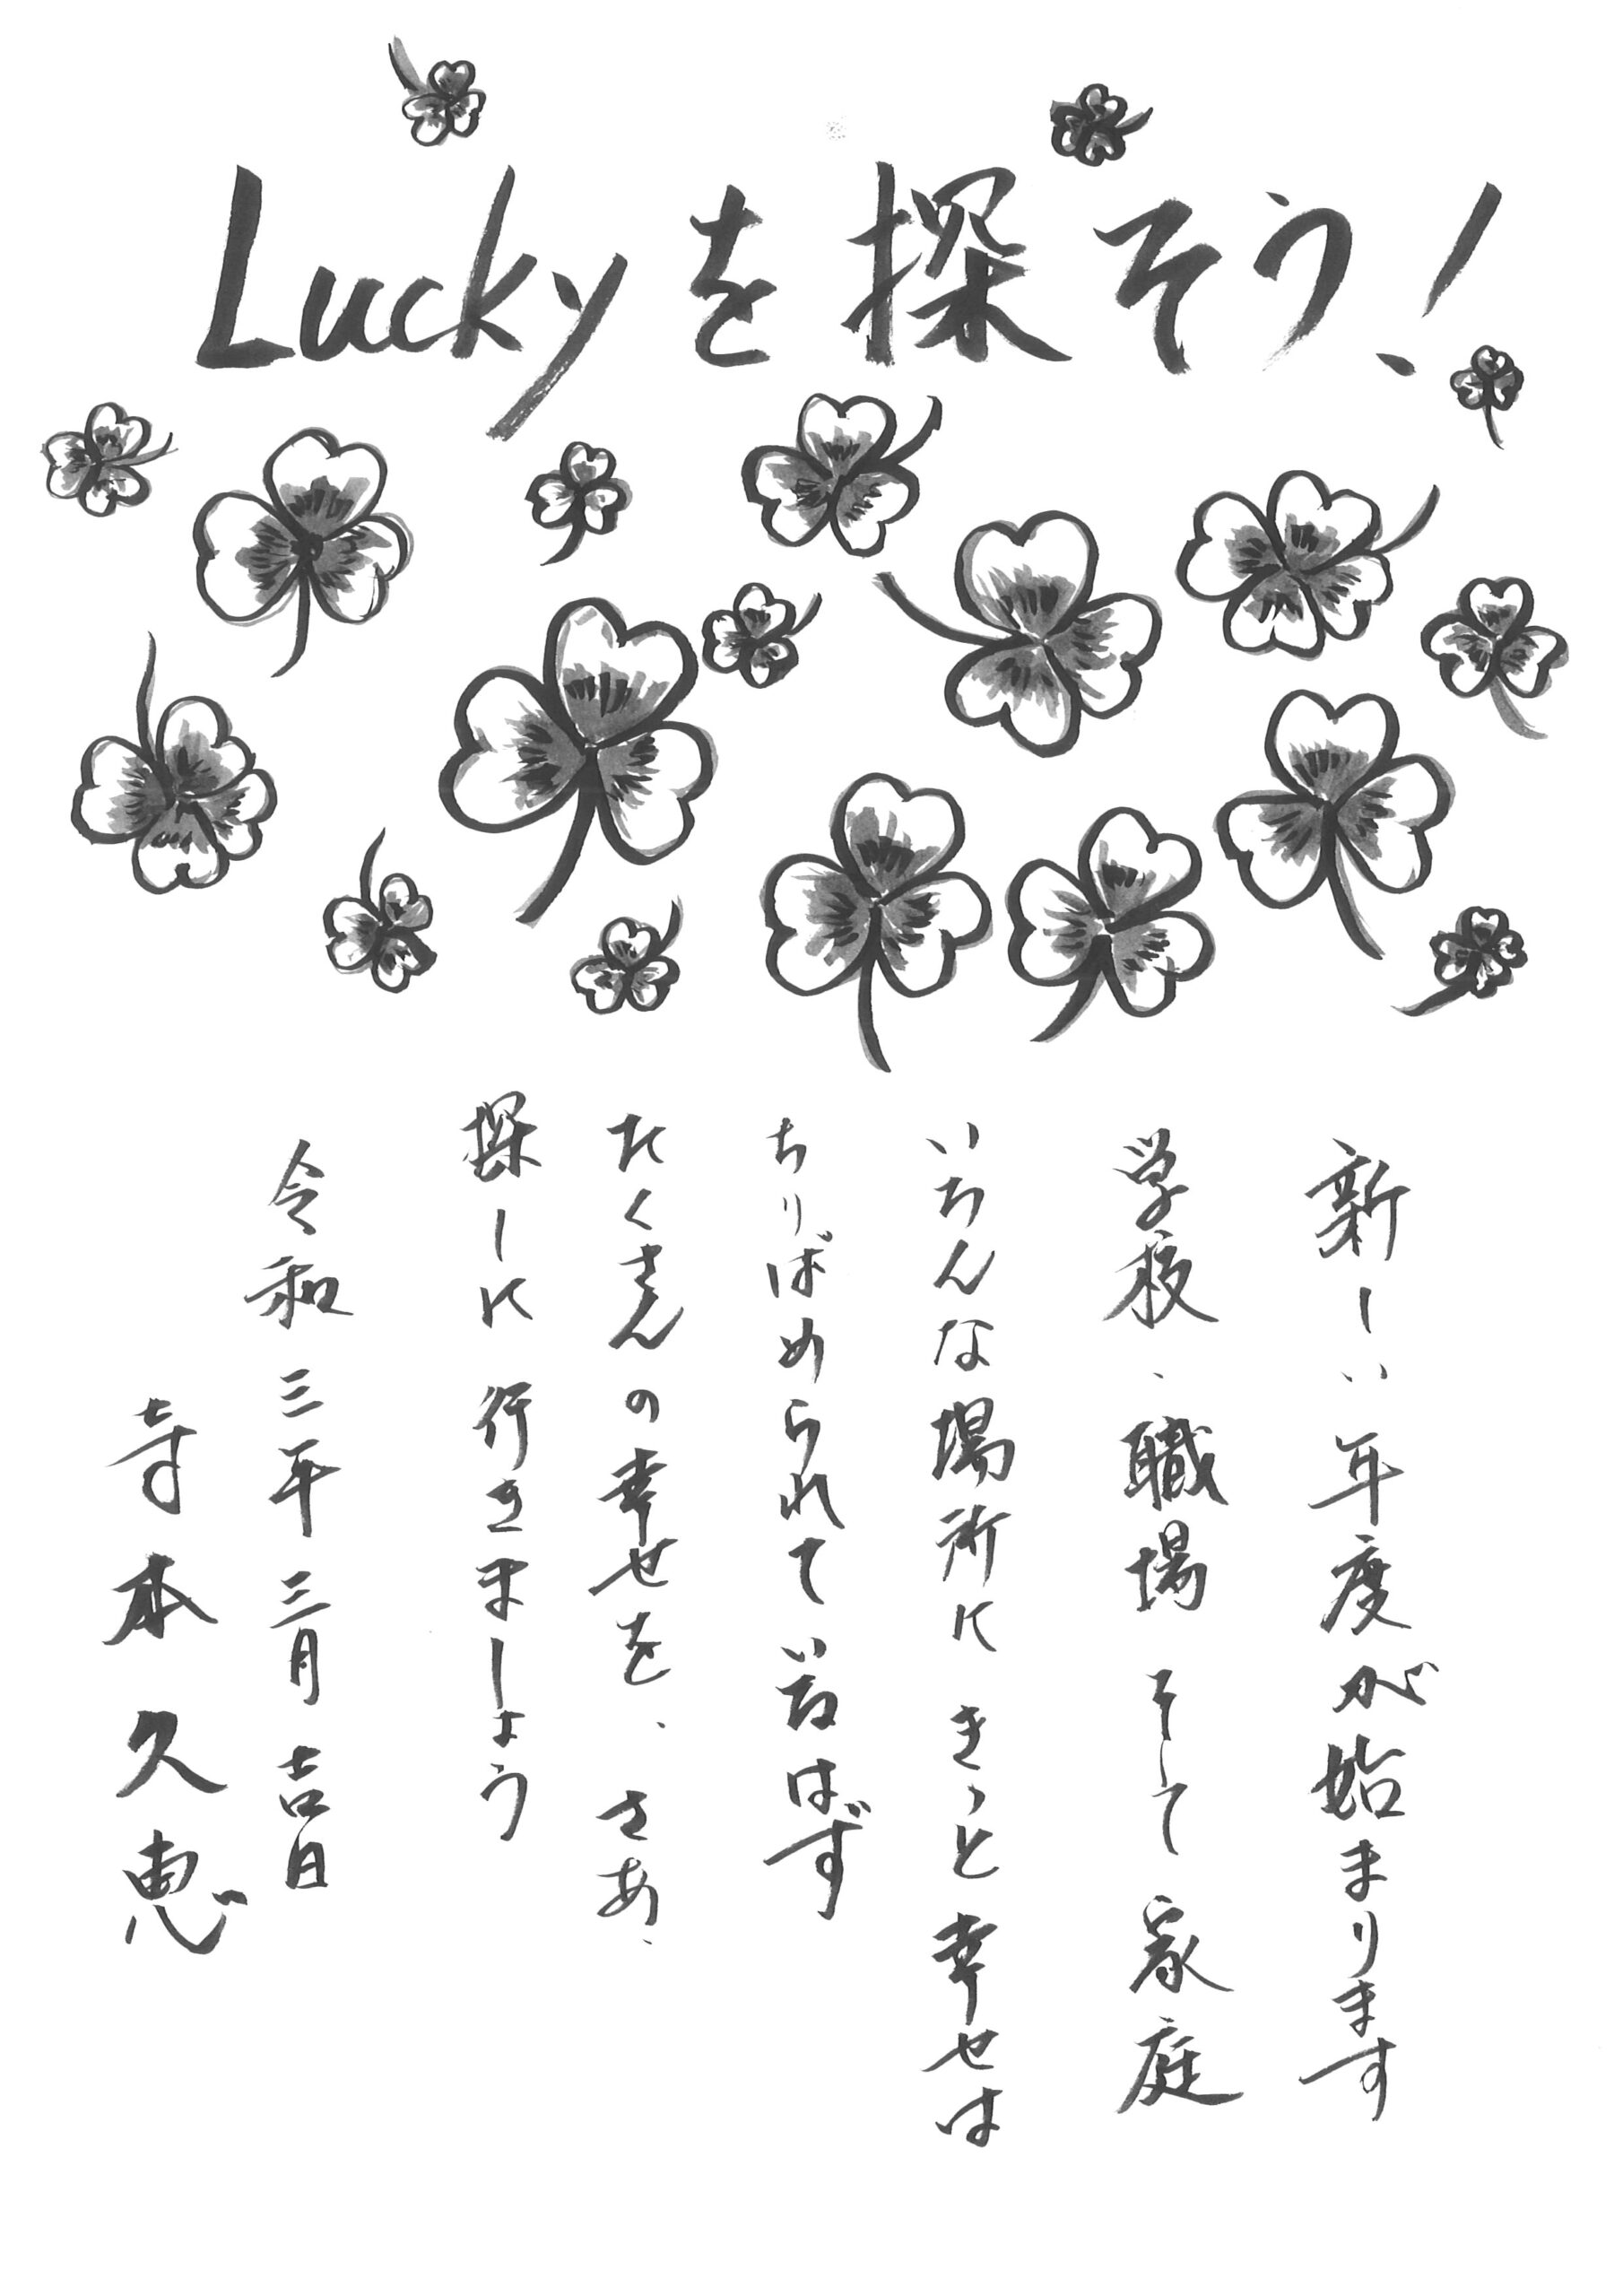 Luckyを探そう!
新しい年度が始まります
学校、職場 そして 家庭
いろんな場所に きっと 幸せは
ちりばめられて いるはず
たくさんの幸せを、さあ、
探しに 行きましょう
令和三年三月吉日
寺本久恵